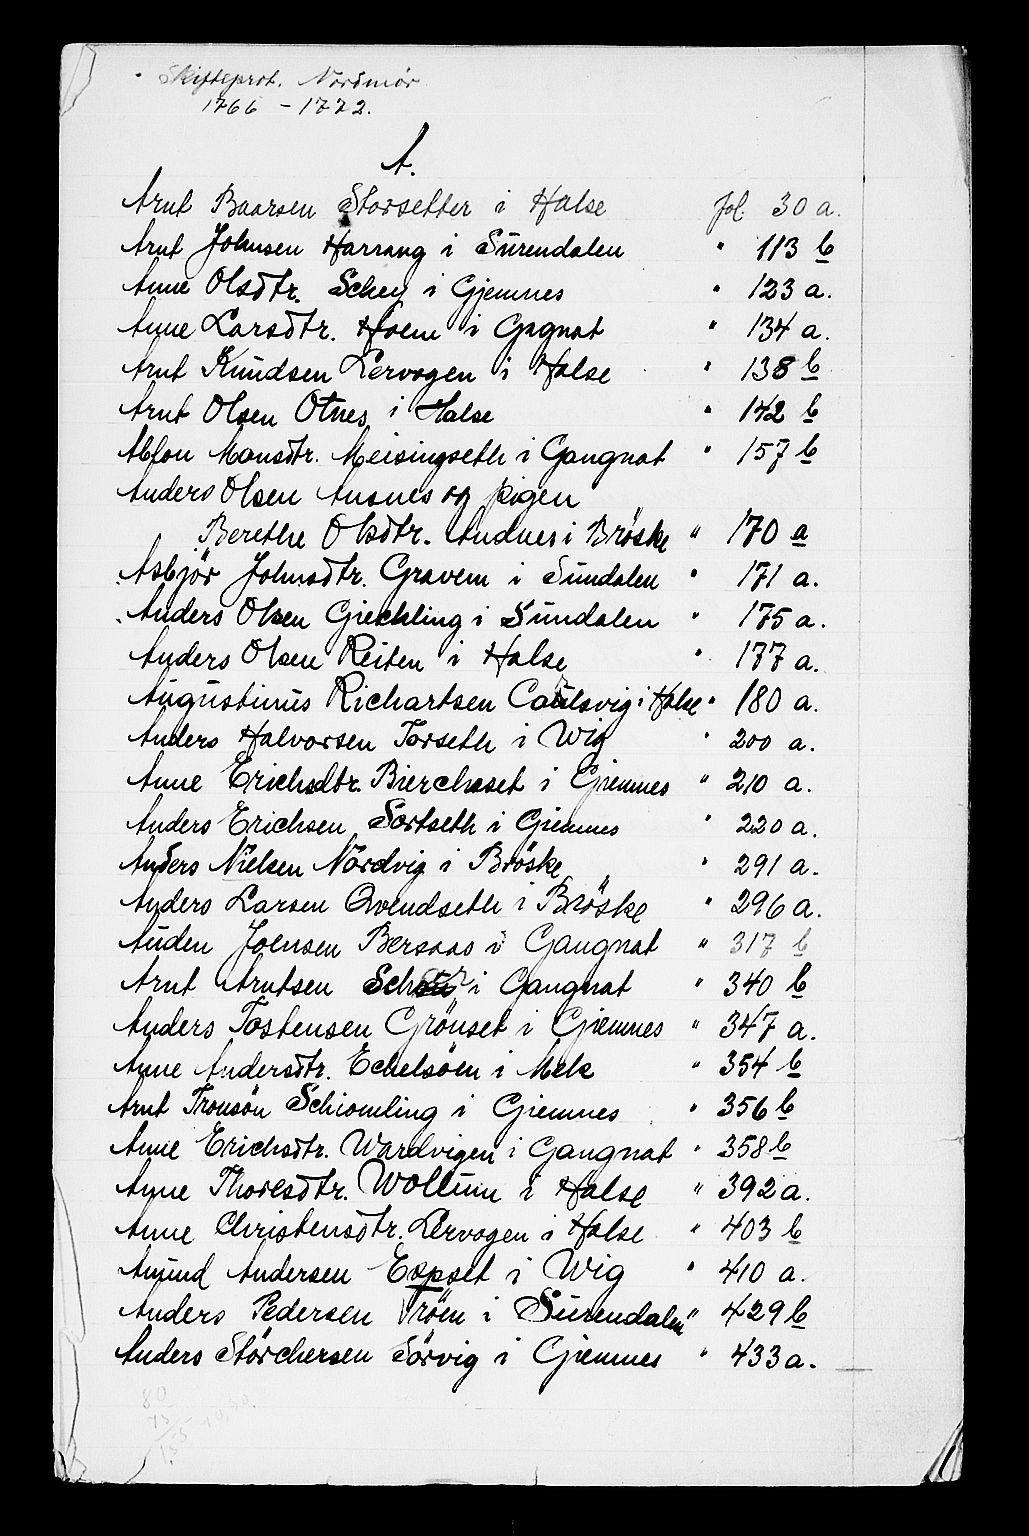 Skifteprot. Nordmör
1766 - 1772.
A.
Arnt Baarsen Storsetter i Halse fol. 30 a.
Arnt Johnsen Harrang i Surendalen " 113 b
Anne Olsdtr. Schey i Gjemnes " 123 a.
Anne Larsdtr. Hoem i Gagnat " 134 a.
Arnt Knudsen Lervogen i Halse " 138 b
Arnt Olsen Otnes i Halse " 142 b
Ablon Mansdtr. Meisingseth i Gangnat " 157 b
Anders Olsen Ansnes og pigen
Berethe Olsdtr. Andnes i Bröske " 170 a
Asbjör Johnsdtr. Gravem i Sundalen " 171 a.
Anders Olsen Giechling i Sundalen " 175 a.
Anders Olsen Reiten i Halse " 177 a.
Augustinus Richartsen Caulsvig i Halse " 180 a.
Anders Halvorsen Torseth i Wig " 200 a.
Anne Erichsdtr. Bierchset i Giemnes " 210 a.
Anders Erichsen Sortseth i Giemnes " 220 a.
Anders Nielsen Nordvig i Bröske " 291 a.
Anders Larsen Qvendseth i Bröske " 296 a.
Auden Joensen Bersaas i Gangnat " 317 b
Arnt Arntsen i Gangnat " 340 b
Anders Tostensen Grönset i Giemnes " 347 a.
Anne Andersdtr. Echelsöen i Mek " 354 b
Arnt Tronsön Schiomling i Giemnes " 356 b
Anne Erichsdtr. Wardvigen i Gangnat " 358 b
Anne Thoresdtr. Wollum i Halse " 392 a.
Anne Christensdtr. Lervogen i Halse " 403 b
Amund Andersen Espset i Wig " 410 a.
Anders Pedersen Tröen i Surendalen " 429 b
Anders Störchersen Sörvig i Giemnes " 433 a.
80
75
155